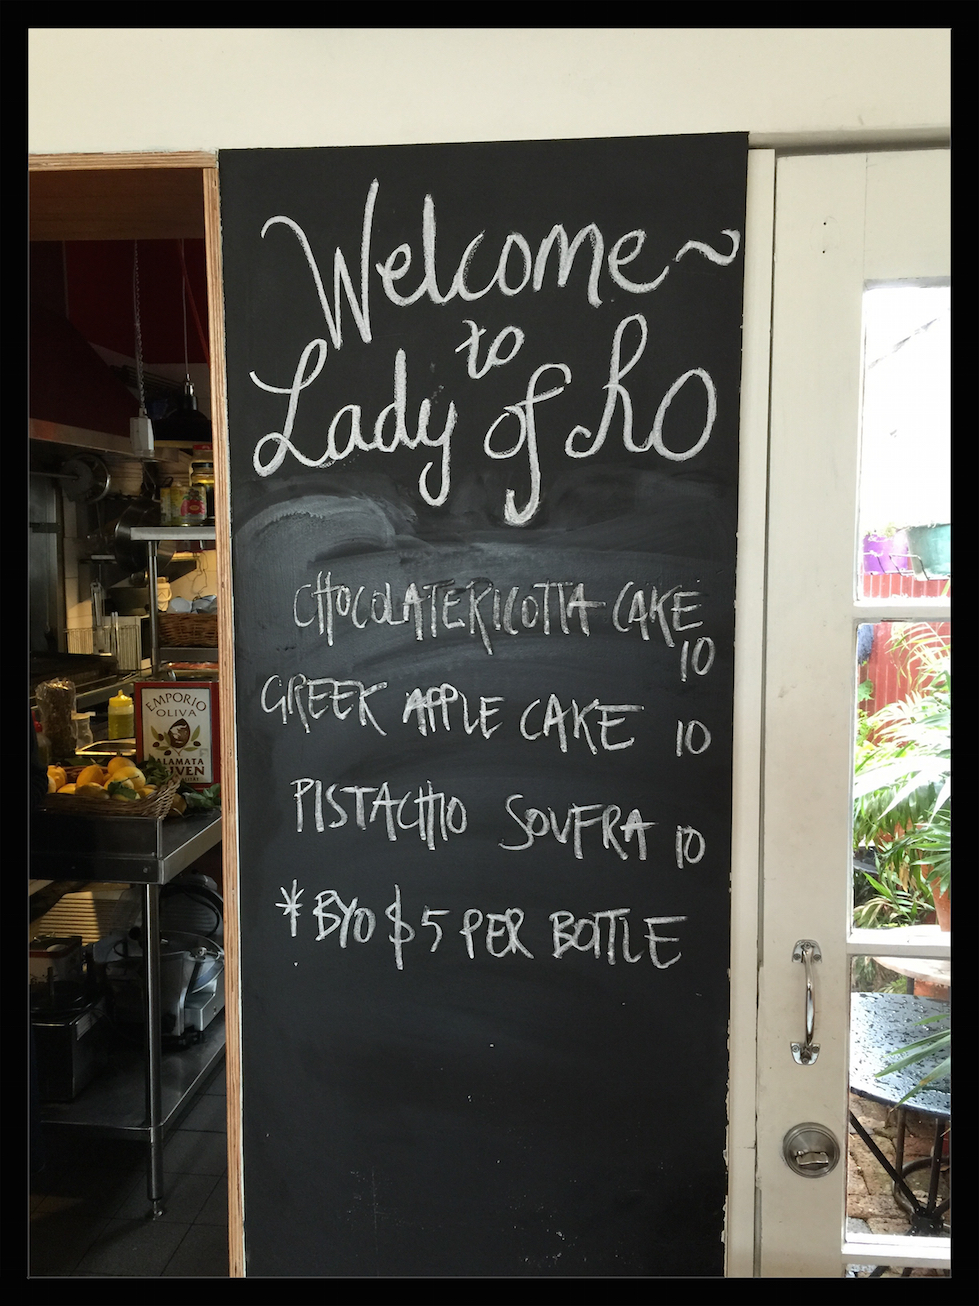 Welcome~
to
Lady of Rho
CHOCOLATE RICOTTA CAKE
10
GREEK APPLE CAKE 10
PISTACHIO SOUFRA 10
* BYO $5 PER BOTTLE
EMPORIO
OLIVA